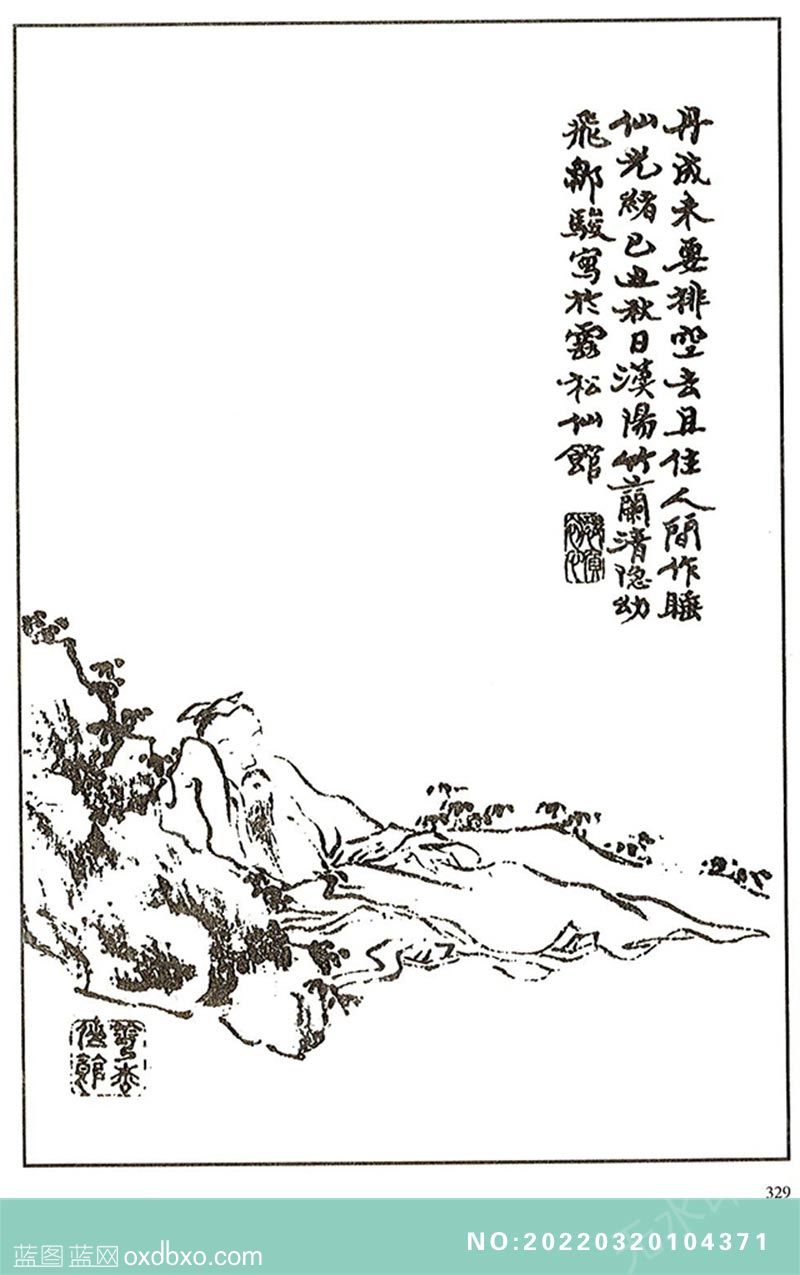 丹成未要排空去且住人間作睡
仙光緒己丑秋日漢陽竹蘭清隐幼
飛鄒駿寫於雲松仙館
329
蓝图蓝网oxdbxo.com
NO:20220320104371